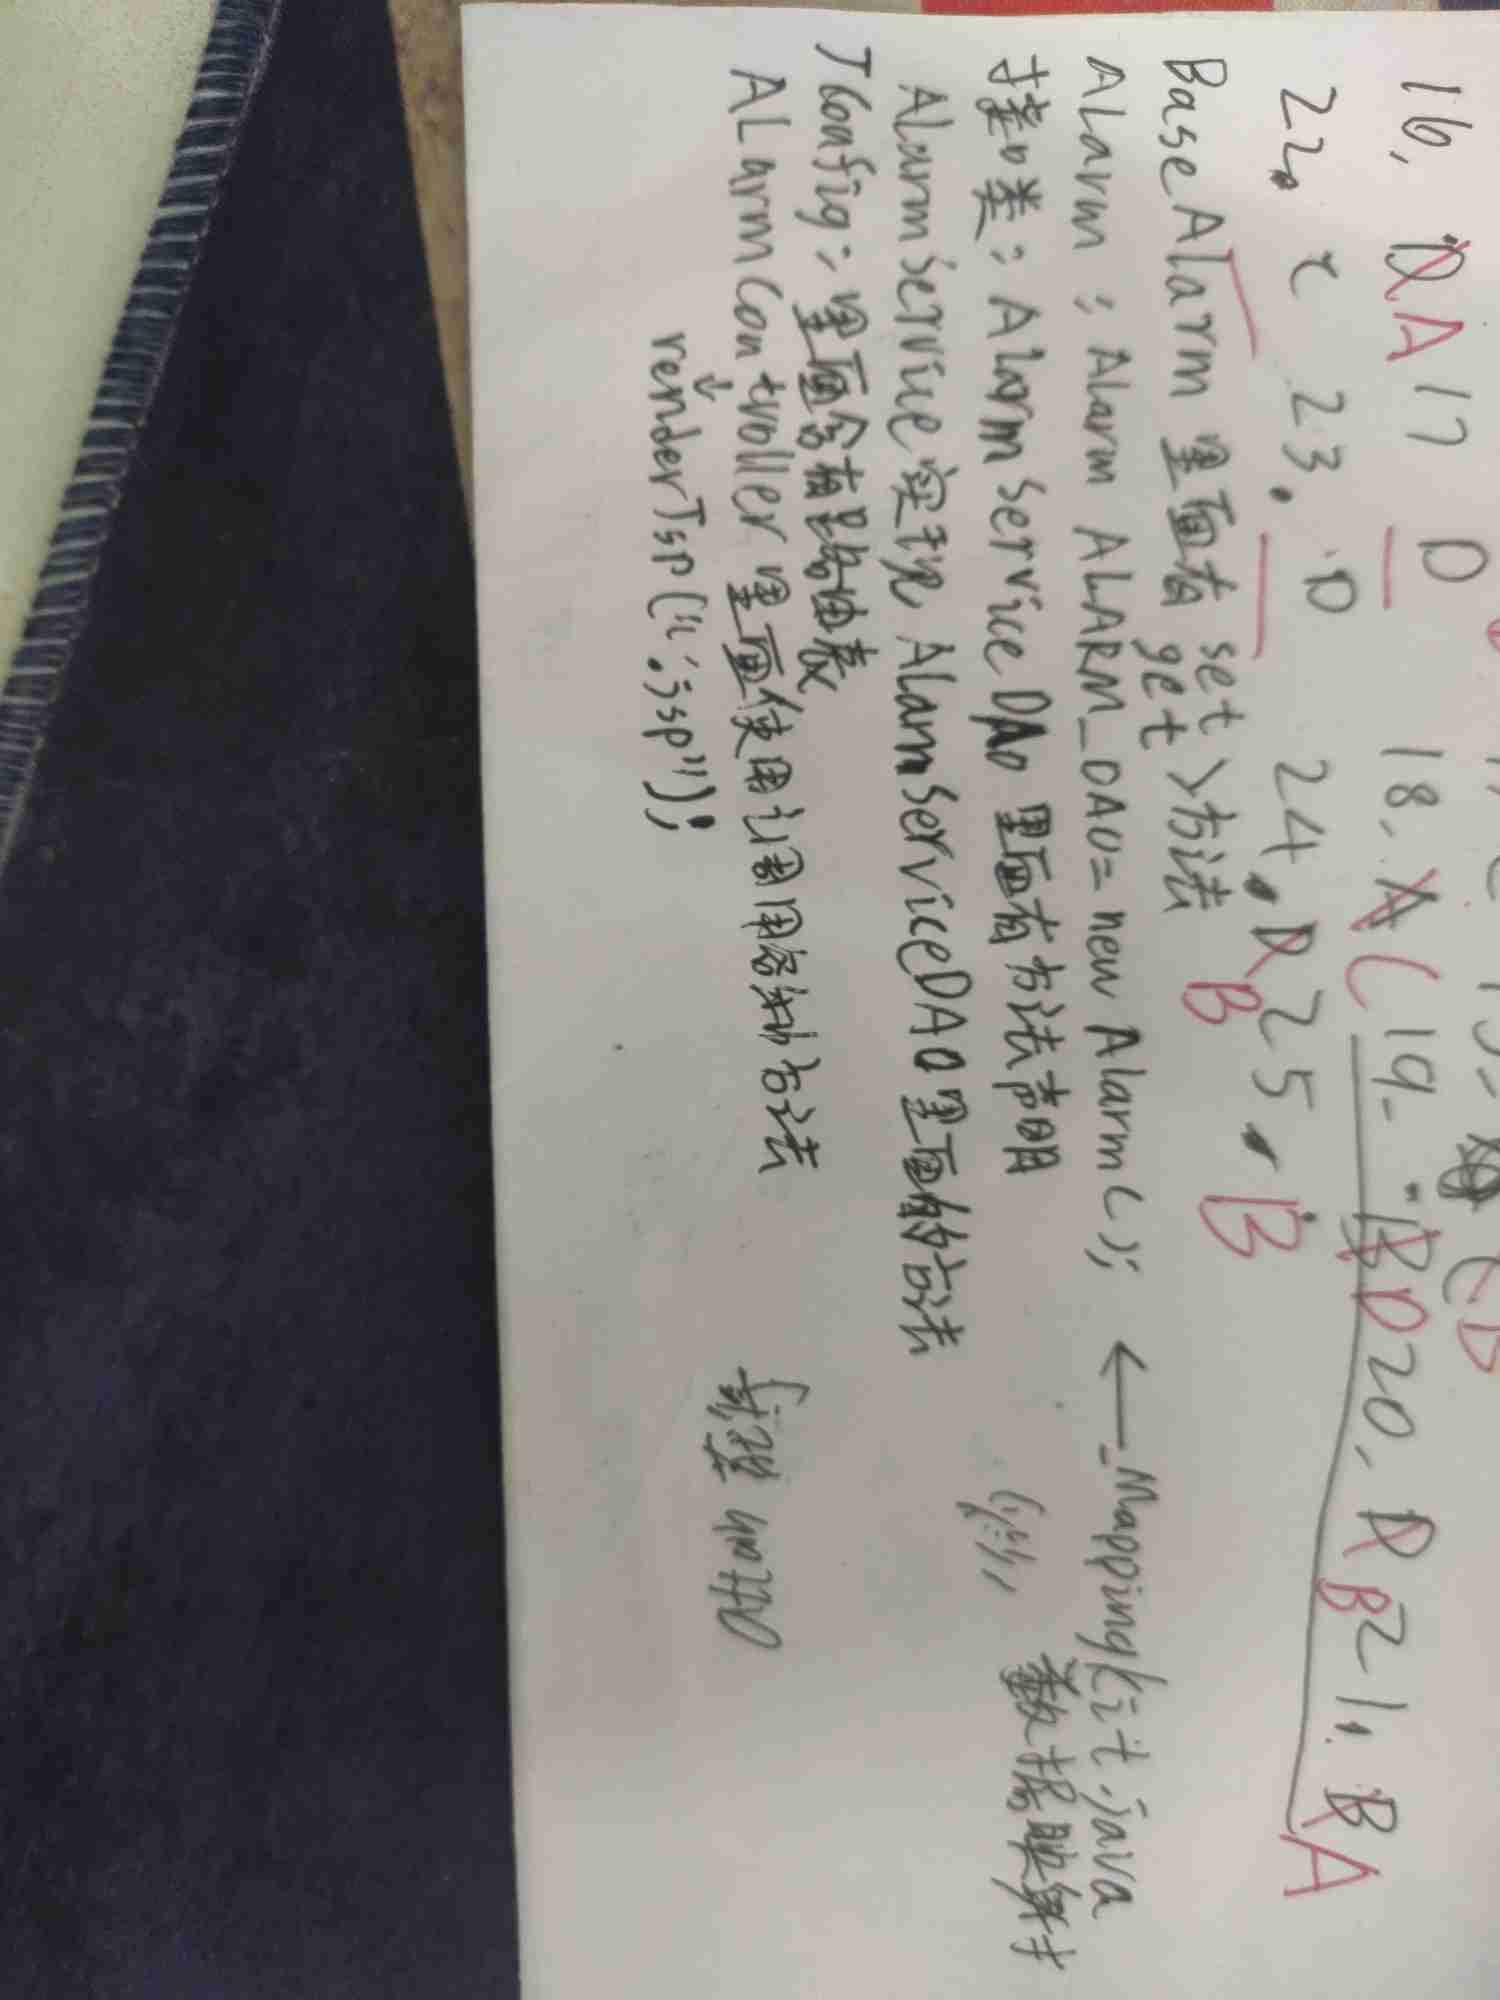 16. D A 17 D 18. A C 19. B D 20. D B 21. B A
22. C 23. D 24. D B 25. B
BaseAlarm 里面有 set get >方法
ALarm : Alarm ALARM_DAO= new Alarm(); ← _MappingKit.java
数据映射
接口类: AlarmServiceDAO 里面有方法声明
AlarmService实现 AlarmServiceDAO里面的方法
JConfig: 里面含有路由表
ALarmController 里面使用调用各种方法
↓
renderJsp(".jsp");